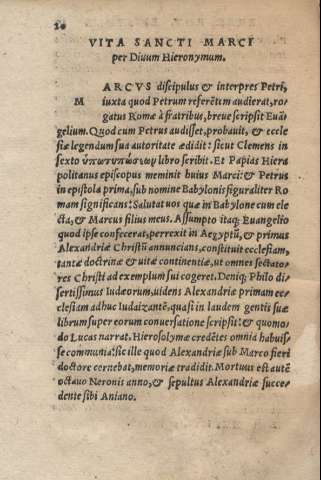 20
VITA SANCTI MARCI
per Diuum Hieronymum.
MARCVS discipulus & interpres Petri,
iuxta quod Petrum referẽtem audierat, ro-
gatus Romæ à fratribus, breue scripsit Euã
gelium. Quod cum Petrus audisset, probauit, & eccle
siæ legendum sua autoritate ædidit: sicut Clemens in
sexto ὑποτυπώσεωμ libro scribit. Et Papias Hiera
politanus episcopus meminit huius Marci: & Petrus
in epistola prima, sub nomine Babylonis figuraliter Ro
mam significans: Salutat uos quæ in Babylone cum ele
cta, & Marcus filius meus. Assumpto itaq; Euangelio
quod ipse confecerat, perrexit in Aegyptũ, & primus
Alexandriæ Christũ annuncians, constituit ecclesiam,
tantæ doctrinæ & uitæ continentiæ, ut omnes sectato-
res Christi ad exemplum sui cogeret. Deniq; Philo di-
sertissimus Iudæorum, uidens Alexandriæ primam ec-
clesiam adhuc Iudaizantẽ, quasi in laudem gentis suæ
librum super eorum conuersatione scripsit: & quomo-
do Lucas narrat, Hierosolymæ credẽtes omnia habuis-
se communia: sic ille quod Alexandriæ sub Marco fieri
doctore cernebat, memoriæ tradidit. Mortuus est autẽ
octauo Neronis anno, & sepultus Alexandriæ succe-
dente sibi Aniano.